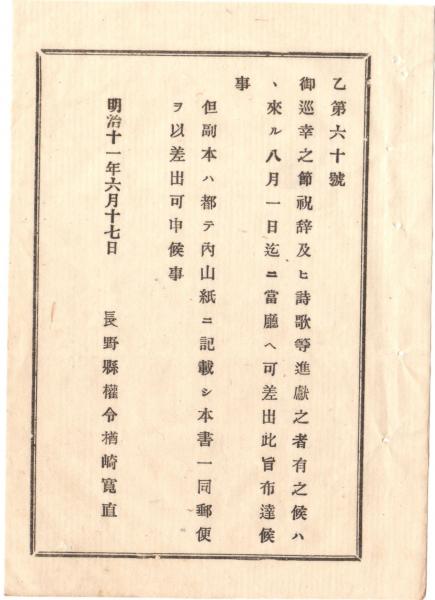 乙第六十號
御巡幸之節祝辞及ヒ詩歌等進獻之者有之候ハ
丶來ル八月一日迄ニ當廳ヘ可差出此旨布達候
事
但副本ハ都テ內山紙ニ記載シ本書一同郵便
ヲ以差出可申候事
明治十一年六月十七日
長野縣權令楢崎寬直